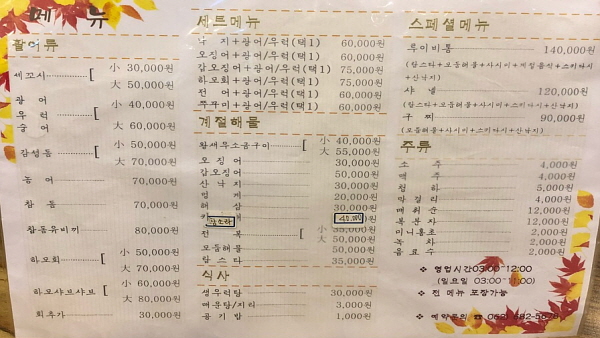 메 뉴
활어류
세꼬시 [ 小 30,000원
大 50,000원
광 어
우 럭 [ 小 40,000원
숭 어 大 60,000원
감성돔 [ 小 50,000원
大 70,000원
농 어 70,000원
참 돔 70,000원
참돔유비끼 80,000원
하모회 [ 小 50,000원
大 70,000원
하모샤브샤브 [ 小 60,000원
大 80,000원
회추가 30,000원
세트메뉴
낙 지+광어/우럭(택1) 60,000원
오징어+광어/우럭(택1) 60,000원
갑오징어+광어/우럭(택1) 75,000원
하모회+광어/우럭(택1) 75,000원
전 어+광어/우럭(택1) 60,000원
쭈꾸미+광어/우럭(택1) 60,000원
계절해물
왕새우소금구이 [ 小 40,000원
大 55,000원
오 징 어 30,000원
갑오징어 50,000원
산 낙 지 30,000원
멍 게 20,000원
해 삼 30,000원
참소라 40,000
전 복 [ 小 35,000원
大 50,000원
모듬해물 50,000원
랍 스 타 35,000원
식사
생우럭탕 30,000원
매운탕/지리 3,000원
공 기 밥 1,000원
스페셜메뉴
루이비통 140,000원
(랍스타+모듬해물+사시미+계절음식+스끼다시
+산낙지)
샤 넬 120,000원
(랍스타+모듬해물+사시미+스끼다시+산낙지)
구 찌 90,000원
(모듬해물+사시미+스끼다시+산낙지)
주류
소 주 4,000원
맥 주 4,000원
청 하 5,000원
막 걸 리 4,000원
매 취 순 12,000원
복 분 자 12,000원
미니홍초 2,000원
녹 차 2,000원
음 료 수 2,000원
❖ 영업시간03:00~12:00
(일요일 03:00~11:00)
❖ 전 메뉴 포장가능
❖ 예약문의 ☎ 062) 682-5678